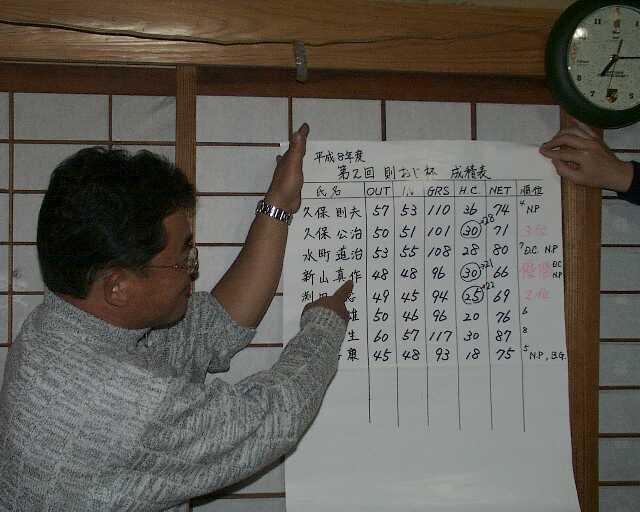 平成8年度
第2回 則おじ杯 成績表
氏名 OUT IN GRS H.C. NET 順位
久保 則夫 57 53 110 36 74 4 N.P
久保 公治 50 51 101 30→28 71 3位
水町 直治 53 55 108 28 80 7 D.C. N.P
新山 真作 48 48 96 30→21 66 優勝 D.C N.P
49 45 94 25→22 69 2位
雄 50 46 96 20 76 6
生 60 57 117 30 87 8
康 45 48 93 18 75 5 N.P, B.G.